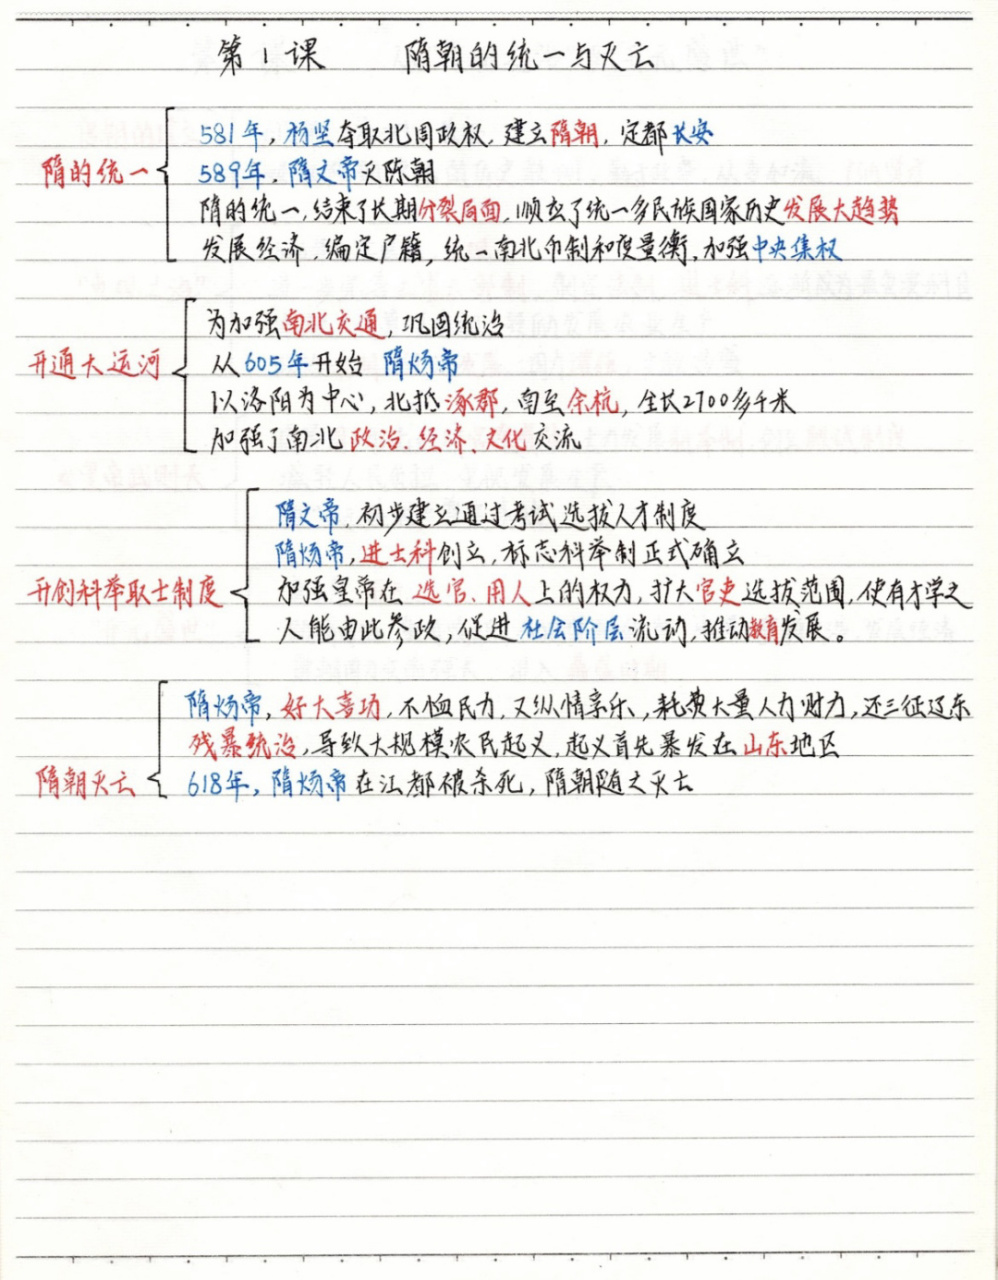 第1课 隋朝的统一与灭亡
581年,杨坚夺取北周政权,建立隋朝,定都长安
隋的统一
589年,隋文帝灭陈朝
隋的统一,结束了长期分裂局面,顺应了统一多民族国家历史发展大趋势
发展经济,编定户籍,统一南北币制和度量衡,加强中央集权
为加强南北交通,巩固统治
开通大运河
从605年开始 隋炀帝
以洛阳为中心,北抵涿郡,南至余杭,全长2700多千米
加强了南北政治、经济、文化交流
隋文帝,初步建立通过考试选拔人才制度
隋炀帝,进士科创立,标志科举制正式确立
开创科举取士制度
加强皇帝在选官、用人上的权力,扩大官吏选拔范围,使有才学之
人能由此参政,促进社会阶层流动,推动教育发展。
隋炀帝,好大喜功,不恤民力,又纵情享乐,耗费大量人力财力,还三征辽东
残暴统治,导致大规模农民起义,起义首先暴发在山东地区
隋朝灭亡
618年,隋炀帝在江都被杀死,隋朝随之灭亡